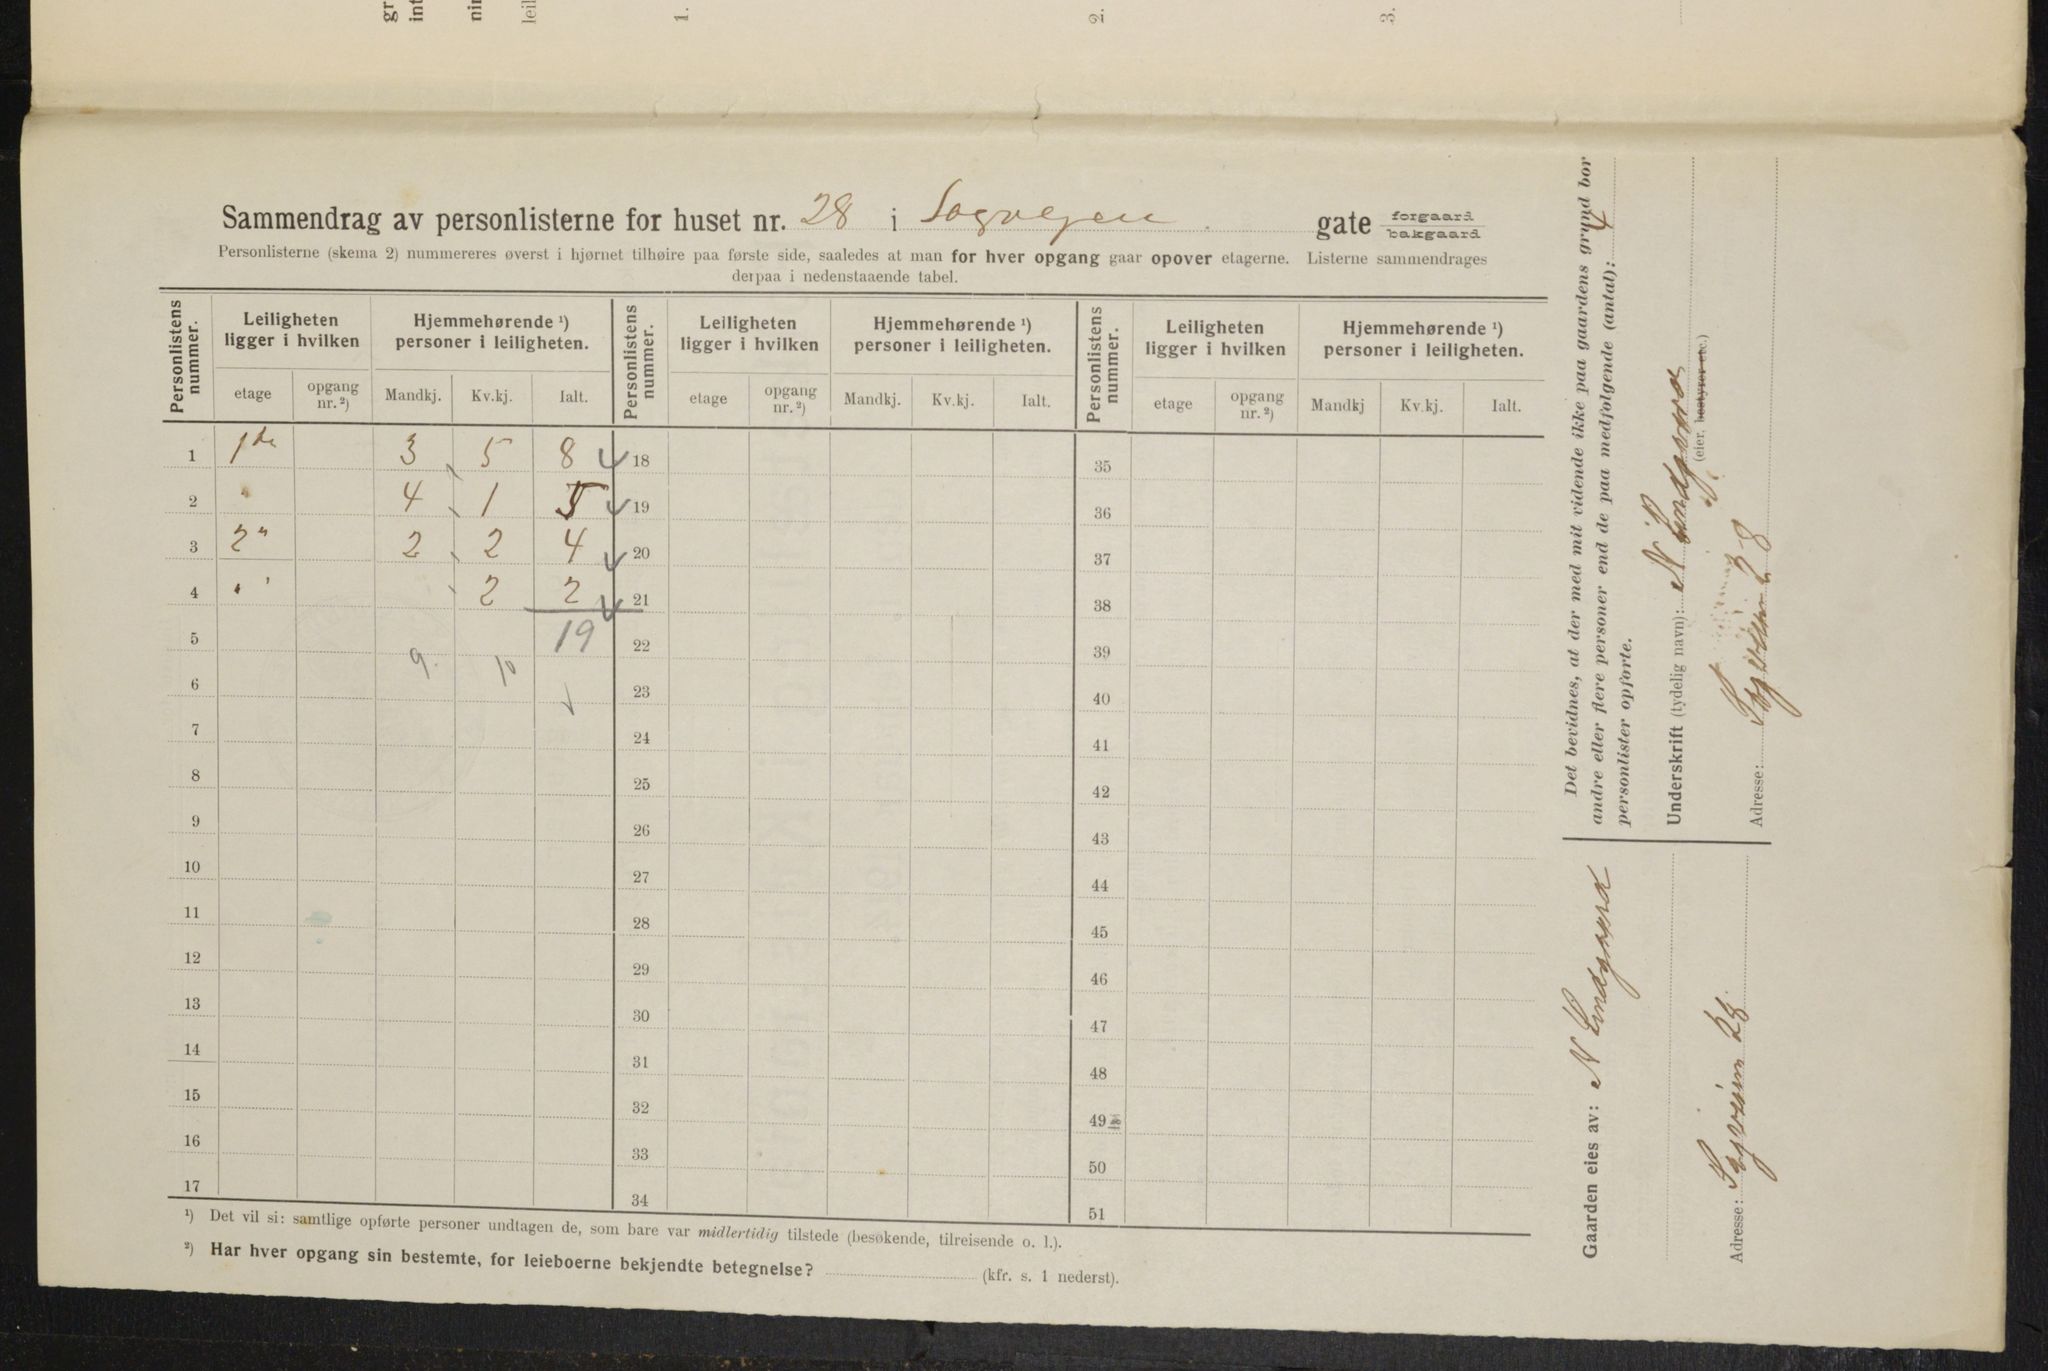 gr
int
nin
leil
1.
2.
3.
Sammendrag av personlisterne for huset nr. 28 i Sogveien gate forgaard bakgaard
Personlisterne (skema 2) nummereres øverst i hjørnet tilhøire paa første side, saaledes at man for hver opgang gaar opover etagerne. Listerne sammendrages
derpaa i nedenstaaende tabel.
Personlistens nummer. Leiligheten ligger i hvilken Hjemmehørende ¹) personer i leiligheten. Personlistens nummer. Leiligheten ligger i hvilken Hjemmehørende ¹) personer i leiligheten. Personlistens nummer. Leiligheten ligger i hvilken Hjemmehørende ¹) personer i leiligheten.
etage opgang nr. ²) Mandkj. Kv.kj. Ialt. etage opgang nr. ²) Mandkj. Kv.kj. Ialt. etage opgang nr. ²) Mandkj Kv.kj. Ialt.
1 1ste 3 5 8 18 35
2 " 4 1 5 19 36
3 2" 2 2 4 20 37
4 " 2 2 21 38
5 19 22 39
6 9. 10 23 40
7 24 41
8 25 42
9 26 43
10 27 44
11 28 45
12 29 46
13 30 47
14 31 48
15 32 49
16 33 50
17 34 51
¹) Det vil si: samtlige opførte personer undtagen de, som bare var midlertidig tilstede (besøkende, tilreisende o. l.).
²) Har hver opgang sin bestemte, for leieboerne bekjendte betegnelse? (kfr. s. 1 nederst).
Det bevidnes, at der med mit vidende ikke paa gaardens grund bor
andre eller flere personer end de paa medfølgende (antal): 4
personlister opførte.
Underskrift (tydelig navn): N Lindgaard
(eier, bestyrer etc.)
Adresse: Sogveien 28
Gaarden eies av: N Lindgaard
Adresse: Sogveien 28.